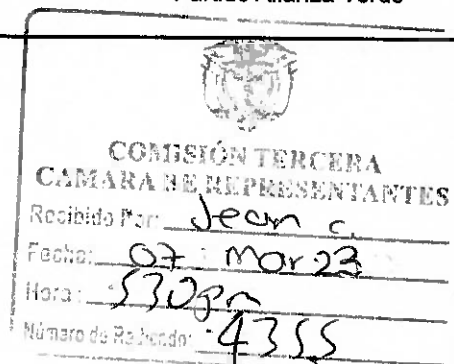 Partido Alianza Verde
COMISIÓN TERCERA
CAMARA DE REPRESENTANTES
Recibido Por: Jean C.
Fecha: 07 Mar 23
Hora: 530pm
Número de Radicado: 4355